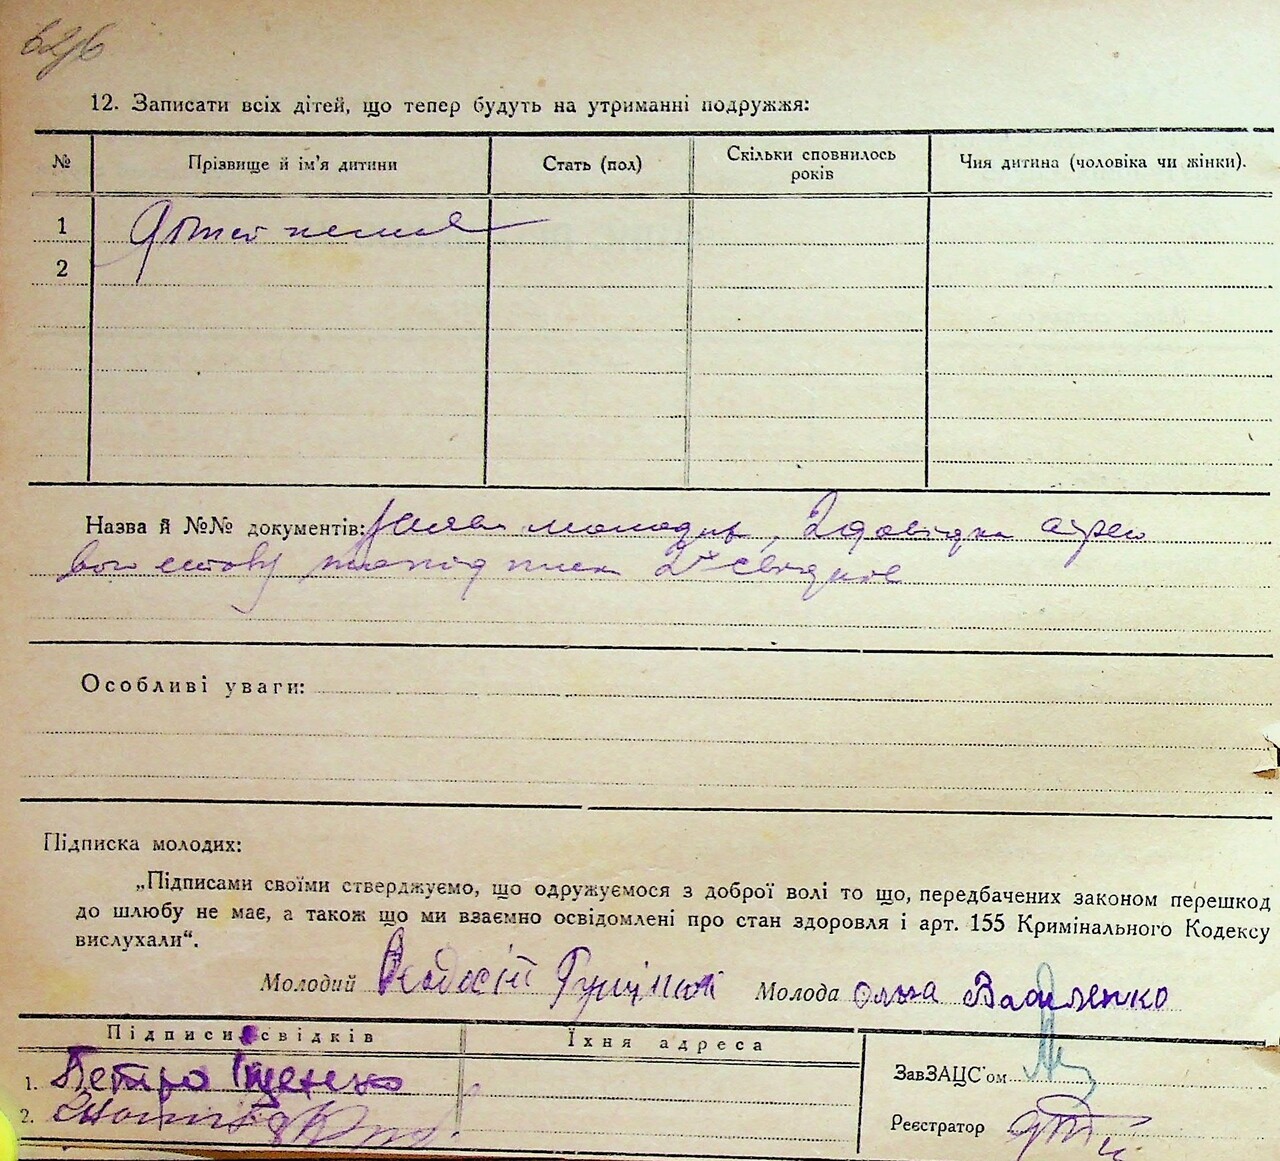 12. Записати всіх дітей, що тепер будуть на утриманні подружжя:
№ Прізвище й ім'я дитини Стать (пол) Скільки сповнилось років Чия дитина (чоловіка чи жінки).
1 Дітей немає
2
Назва й №№ документів: молодих, 2 довідки
2х свідків
Особливі уваги:
Підписка молодих:
„Підписами своїми стверджуємо, що одружуємося з доброї волі то що, передбачених законом перешкод
до шлюбу не має, а також що ми взаємно освідомлені про стан здоровля і арт. 155 Кримінального Кодексу
вислухали“.
Молодий Феодосій Молода Ольга Василенко
Підписи свідків Їхня адреса
1. Петро Іщенко
ЗавЗАЦС'ом
2.
Реєстратор